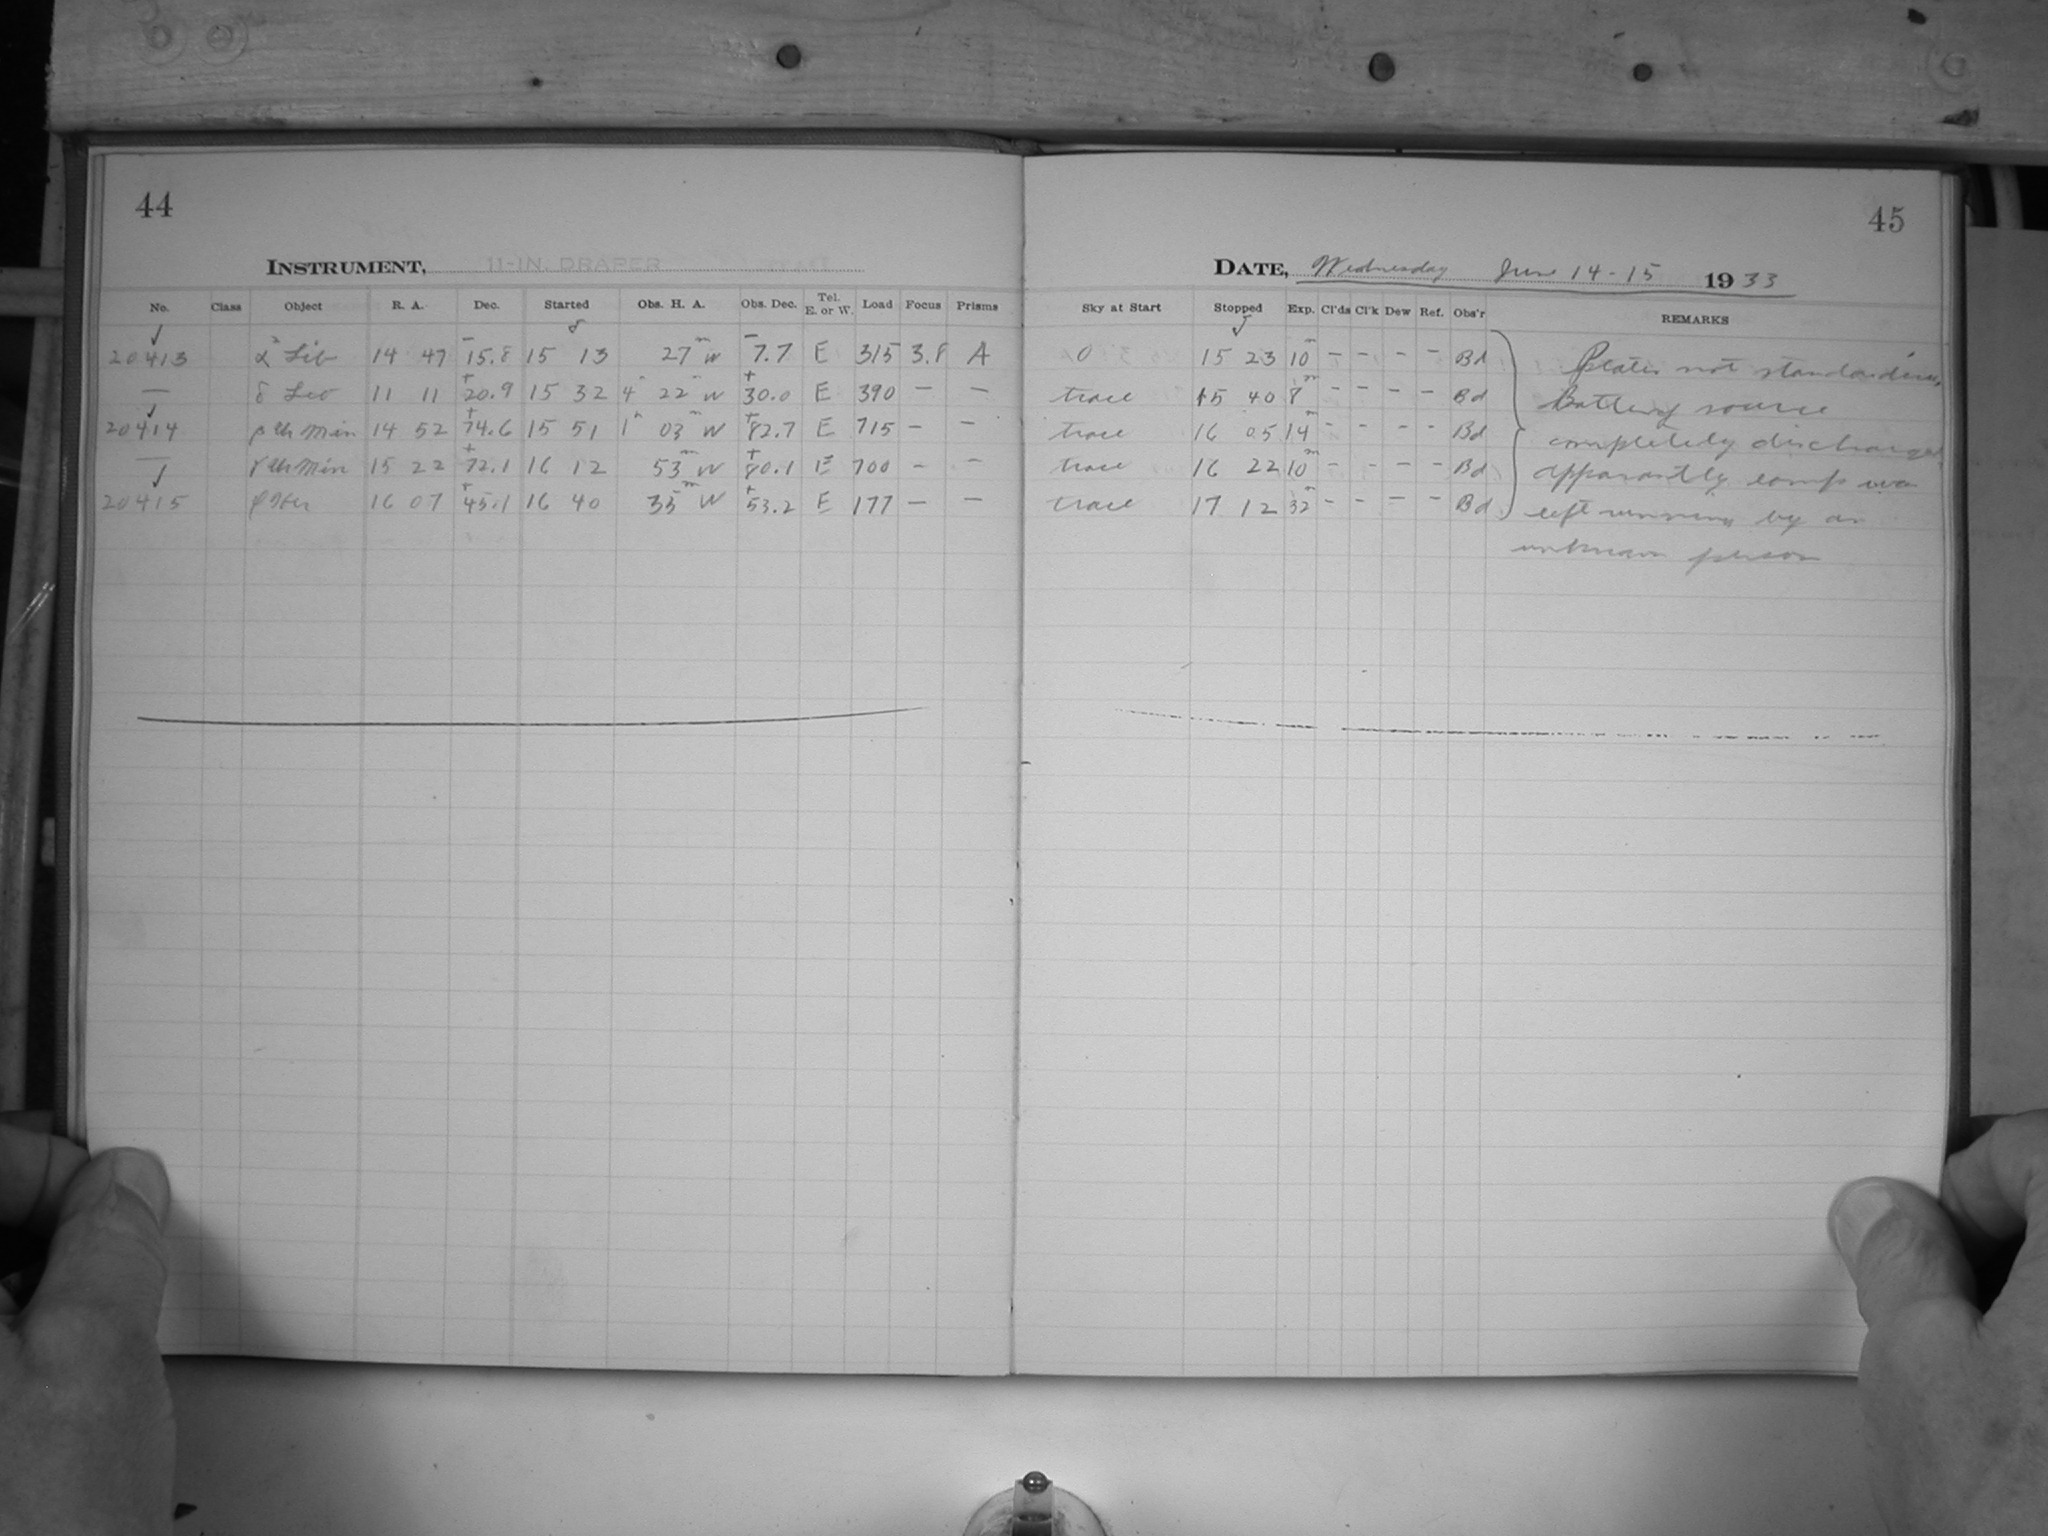 44
INSTRUMENT, 11-IN. DRAPER
No. Class Object R. A. Dec. Started Obs. H. A. Obs. Dec. Tel. E. or W. Load Focus Prisms
✓
20413 α² Lib 14 47 −15.8 15 13 27ᵐ W −7.7 E 315 3.8 A
— δ Leo 11 11 +20.9 15 32 4ʰ 22ᵐ W +30.0 E 390 — —
✓
20414 β Ur Min 14 52 +74.6 15 51 1ʰ 03ᵐ W +82.7 E 715 — —
— γ Ur Min 15 22 +72.1 16 12 53ᵐ W +80.1 E 700 — —
✓
20415 φ Her 16 07 +45.1 16 40 35ᵐ W +53.2 E 177 — —
45
DATE, Wednesday June 14-15 1933
Sky at Start Stopped Exp. Cl'ds Cl'k Dew Ref. Obs'r REMARKS
0 15 23 10ᵐ – – – – Bd
trace 15 40 8ᵐ – – – – Bd
trace 16 05 14ᵐ – – – – Bd
trace 16 22 10ᵐ – – – – Bd
trace 17 12 32ᵐ – – – – Bd
Plates not
Battery source
completely discharged
apparantly lamp was
left running by an
unknown person